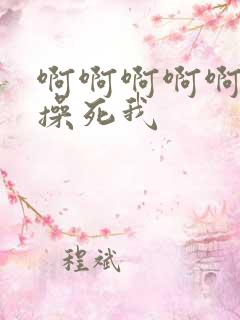 啊啊啊啊啊
操死我
程斌